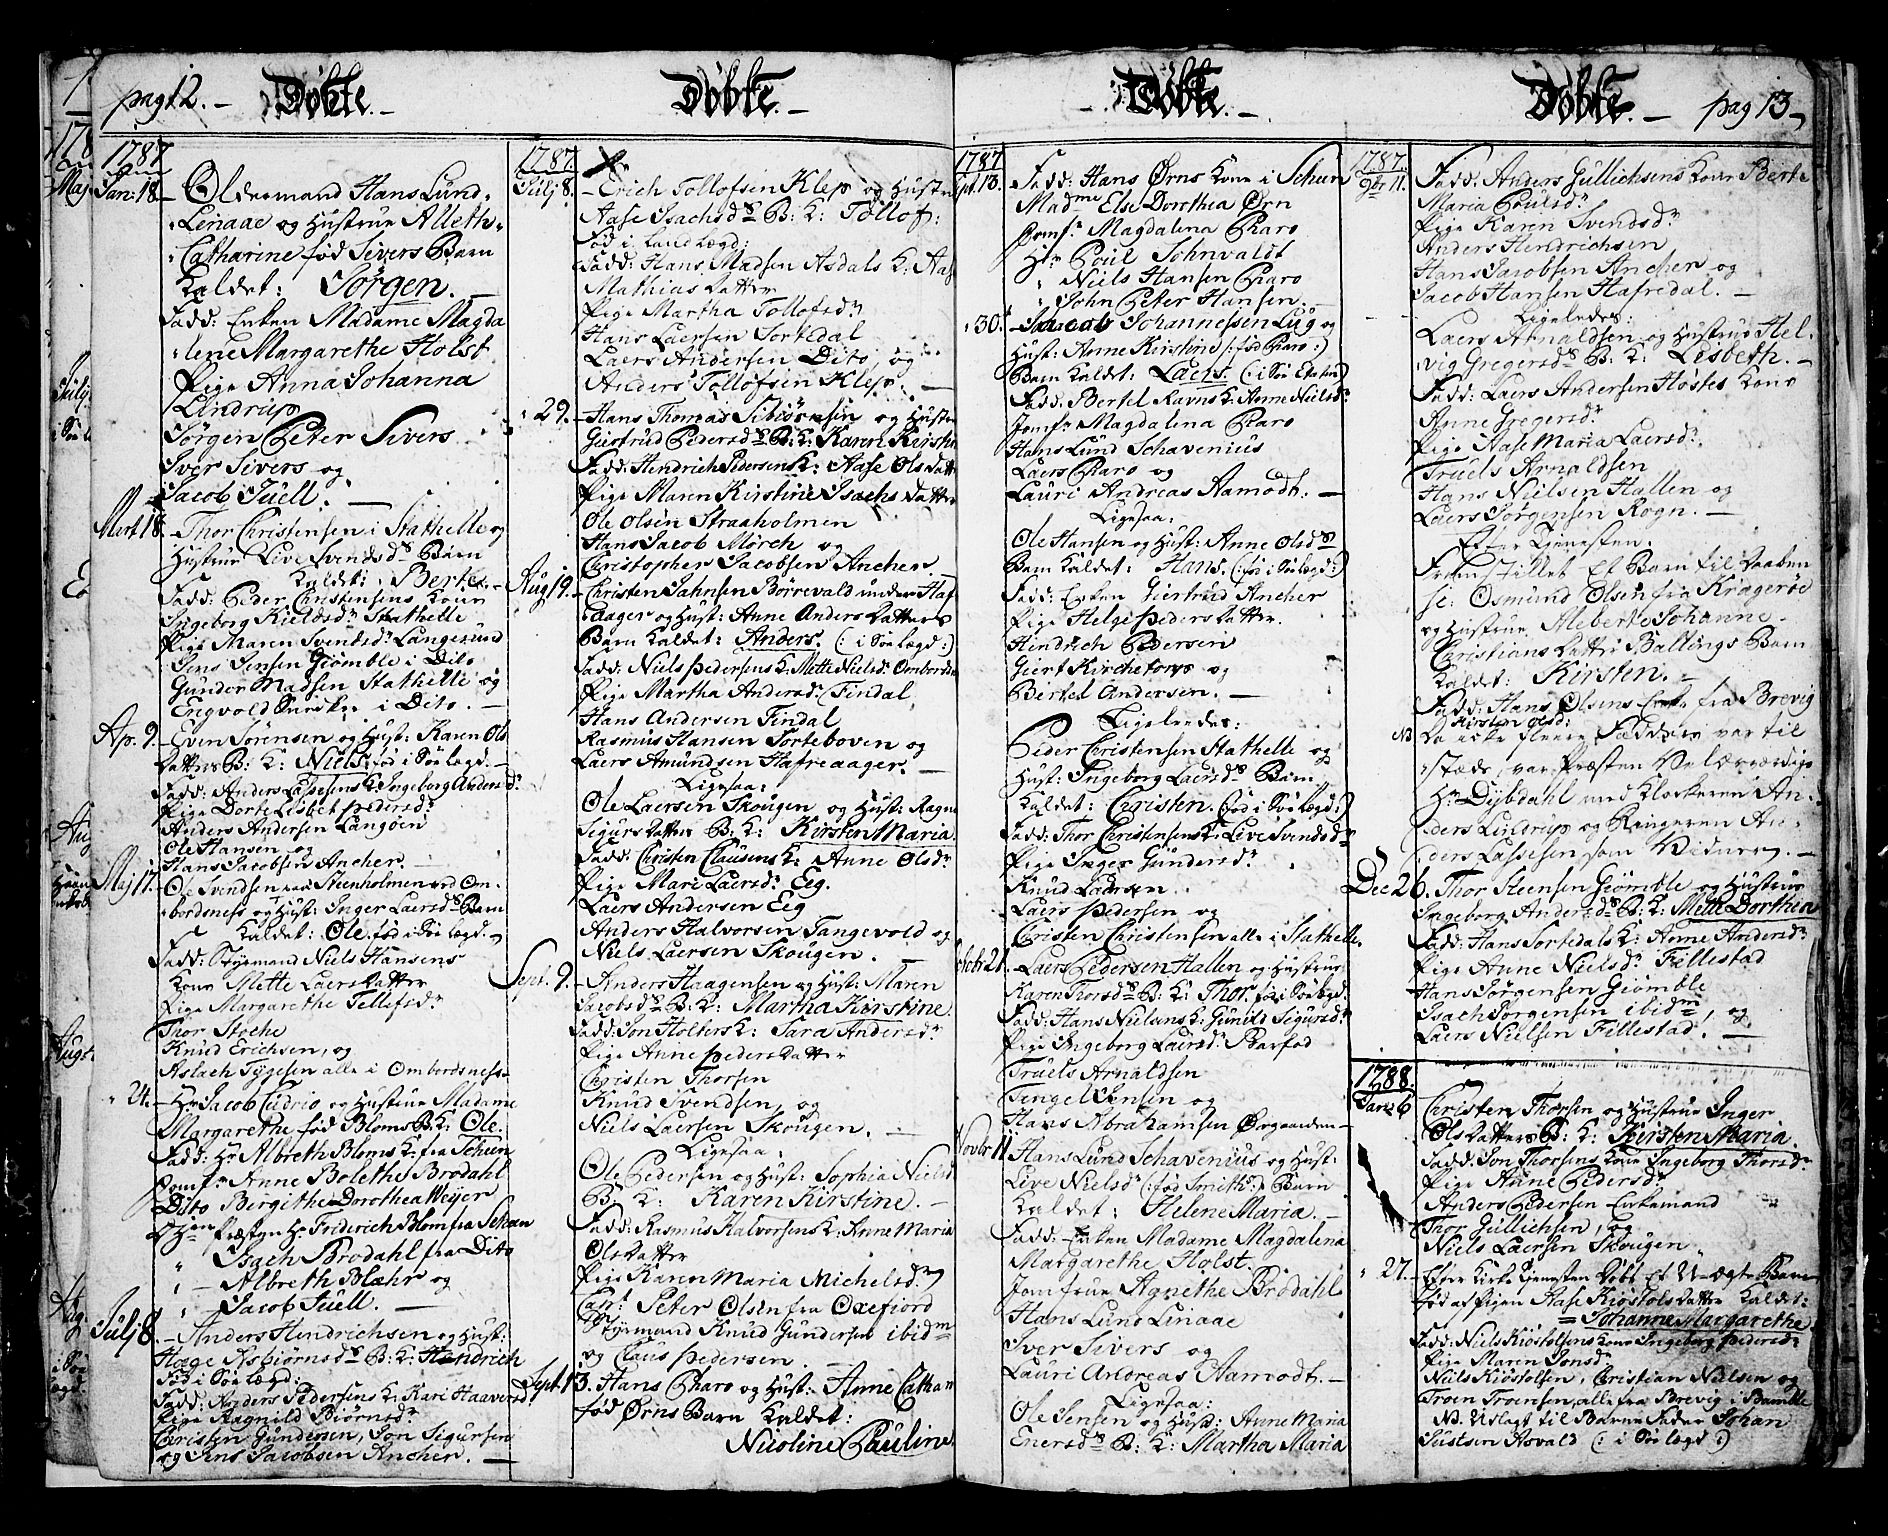 pag: 12. Døbte. Døbte.
1787
Jan: 18. Oldermand Hans Lund
Linaae og Hustrue Alleth
Catharine fød Sivers Barn
Kaldet: Jørgen.
Fadd: Enken Madame Magda
lene Margarethe Holst
Pige Anna Johanna
Lindrup
Jørgen Peter Sivers
Iver Sivers og
Jacob Juell.
Mart. 18. Thor Christensen i Stathelle og
Hustrue Live Svendsd. Barn
Kaldet: Berte.
Fadd: Peder Christensens Kone
Ingeborg Kieldsd. Stathelle
Pige Maren Svendsd. Langesund
Jens Jensen Giømble i Dito
Gunder Madsen Stathelle og
Engvold i Dito.
Ap. 9. Even Sørensen og Hust: Karen Ols
Datters B: K: Niels. fød i Søe Lægd.
Fadd: Anders Lassesens K: Ingeborg Andersd.
Pige Dorte Lisbet Pedersdr
Anders Andersen Langøen
Ole Hansen og
Hans Jacobsen Ancher.
Maj 17. Ole Svendsen paa Steenholmen ved Om-
bordsness og Hust: Inger Laersd. Barn
Kaldet: Ole. fød i Søe Lægd.
Fadd: Styrmand Niels Hansens
Kone Mette Laersdatter
Pige Margarethe Tellefsdr
Thor Stoehe
Knud Erichsen, og
Aslach Tygesen alle i Ombordsness
24. Hr Jacob Cudrio og Hustrue Madame
Margarethe fød Bloms B: K: Ole.
Fadd: Hr Albreth Bloms K: fra Scheen
Jomfr. Anne Boleths Brodahl
Dito Bergithe Dorothea Weyer
Hrn Præsten Hr Friderich Blom fra Scheen
" Isach Brodahl fra Dito
" Albreth Blæhr og
" Jacob Juell.
Julj 8. Anders Hendrichsen og Hust:
Hæge Asbiørnsd. B: K: Hendrich
fød i Søe Lægd:
Fadd: Anders Pedersens K: Kari Haaversd.
Pige Ragnild Biørnsdr
Christen Gundersen, Jon Sigursen
og Jens Jacobsen Ancher.
1787.
Julj 8. Erich Tollofsen Klep og Hustr
Aase Isachsd. B: K: Tollof:
Fød i Land Lægd:
Fadd: Hans Madsen Asdals K: Aase
Mathias Datter
Pige Martha Tollofsdr
Hans Laersen Tortedal
Laers Andersen Dito, og
Anders Tollofsen Klep.
29. Hans Thomas Sibiørnsen og Hustr
Giertrud Pedersd. B: K: Karen Kirsti
Fadd: Hendrich Pedersens K: Aase Ols Datt
Pige Maren Kirstine Isachs Datter
Ole Olsen Straaholmen
Hans Jacob Mørch og
Christopher Jacobsen Ancher.
Aug. 19. Christen Jahnsen Børrevald under Haf
aager og Hust: Anne Anders Datters
Barn Kaldet: Anders. (: i Søe lægd:)
Fadd: Niels Pedersens K: Mette Nielsd. Ombordsn
Pige Martha Andersdr. Findal
Hans Andersen Findal
Rasmus Hansen Torteboven og
Laers Amundsen Hafreaager.
Ligesaa:
Ole Laersen Skougen og Hust: Ragne
Sigurs Datters B: K: Kirsten Maria
Fadd: Christen Clausens K: Anne Olsdr
Pige Mari Laersdr. Eeg.
Laers Andersen Eeg
Anders Halvorsen Tangevold og
Niels Laersen Skougen.
Sept. 9. Anders Haagensen og Hust: Maren
Jacobsd. B: K: Martha Kirstine
Fadd: Jon Holters K: Sara Andersdr
Pige Anne Peders Datter
Christen Thorsen
Knud Svendsen, og
Niels Laersen Skougen.
Ligesaa:
Ole Pedersen og Hust: Sophia Nielsd
B: K: Karen Kirstine.
Fadd: Rasmus Halvorsens K: Anne Maria
Ols Datter
Pige Karen Maria Michelsdr
Capt. Peter Olsen fra Oxefiord
Styrmand Knud Gundersen ibidm
og Claus Pedersen.
Sept. 13. Hans Pharo og Hust: Anne Catha
fød Ørns Barn Kaldet:
Nicoline Pauline
Døbte. Døbte. pag 13
1787
Spt. 13. Fadd: Hans Ørns Kone i Scheen
Madme Else Dorothea Ørn
Jomfr. Magdalena Pharo
Hr Poul Johnvaldt
" Niels Hansen Pharo
" John Peter Hansen.
30. Jacob Johannessen Lug og
Hust: Anne Kirstine (: fød Pharo:)
Barn Kaldet: Laers. (: i Søe)
Fadd: Bertel Ravns K: Anne Nielsdr
Jomfr Magdalena Pharo
Hans Lund Schavenius
Laers Pharo og
Lauri Andreas Aamodt.
Ligesaa:
Ole Hansen og Hust: Anne Olsd.
Barn Kaldet: Hans. (: fød i Søe lægd:)
Fadd: Enken Giertrud Ancher
Pige Helge Peders Datter.
Hindrich Pedersen
Giert Kirchetorp og
Bertel Andersen.
Ligeledes:
Peder Christensen Stathelle og
Hust: Ingeborg Laersd. Barn
Kaldet: Christen. (fød i Søe Lægd:)
Fadd: Thor Christensens K: Live Svendsdr
Pige Inger Gundersdr
Knud Laersen
Laers Pedersen og
Christen Christensen alle i Stathelle.
Octobr 21. Laers Pedersen Hallen og Hustrue
Karen Thorsd. B: K: Thor. fød i Søe lægd.
Fadd: Hans Nielsens K: Gunild Sigursdr
Pige Ingeborg Laersdr. Barfod
Truels Arnoldsen
Tengel Jensen og
Hans Abrahamsen Ørgaarden
Novbr 11. Hans Lund Schavenius og Hust:
Live Nielsdr (: fød Smith:) Barn
Kaldet: Helene Maria.
Fadd: Enken Madame Magdalena
Margarethe Holst.
Jomfrue Agnethe Brodahl
Hans Lund Linaae
Iver Sivers og
Lauri Andreas Aamodt.
Ligesaa:
Ole Jensen og Hust: Anne Maria
Enersd. B: K: Martha Maria
1787.
9br. 11. Fadd: Anders Gullichsens Kone Berte
Maria Poulsdr
Pige Karen Svendsdr
Anders Hendrichsen
Hans Jacobsen Ancher og
Jacob Hansen Hafredal.
Ligeledes:
Laers Arnoldsen og Hustrue Hel-
vig Gregersd. B: K: Lisbeth.
Fadd: Laers Andersen Høstes Kone
Anne Gregersdr
Pige Aase Maria Laersdr.
Truels Arnoldsen
Hans Nielsen Hallen og
Laers Jørgensen Rogn.
Efter Tienesten.
Fremstillet Et Barn til Daaben
se: Osmund Olsen fra Kragerøe
og Hustrue Aleberte Johanne
Christians Datter Ballings Barn
Kaldet: Kirsten.
Fadd: Hans Olsens Enke fra Brevig
Kirsten Olsd:
NB Da icke fleere Faddere var til
stæde, var Præsten Velærværdige
Hr Dybdahl med Klockeren An-
ders Lindrup og Ringeren An-
ders Lassesen som Vidner.
Dec 26. Thor Steensen Giømble og Hustrue
Ingeborg Andersd. B: K: Mette Dorthea
Fadd: Hans Tortedals K: Anne Andersdr
Pige Anne Nielsdr Fillestad
Hans Jørgensen Giømble
Isach Jørgensen ibidm, og
Laers Nielsen Fillestad.
1788.
Jan: 6 Christen Thorsen og Hustrue Inger
Ols Datters B: K: Kirsten Maria.
Fadd: Jon Thorsens Kone Ingeborg Thorsdr
Pige Anne Pedersdr
Anders Pedersen Enkemand
Thor Gullichsen, og
Niels Laersen Skougen
27. Efter Kirke Tienesten Døbt Et U-ægte Barn
fød af Pigen Aase Kiøstols Datter Kaldet:
Johanne Margarethe
Fadd: Niels Kiøstolsens Kone Ingeborg Pedersdr
Pige Maren Jonsdr
Niels Kiøstolsen, Christian Nielsen og
Troen Troensen, alle fra Brevig i Bamble
NB. Udlagt til Barne Fader Johan
Justsen Asvald (: i Søe lægd:)